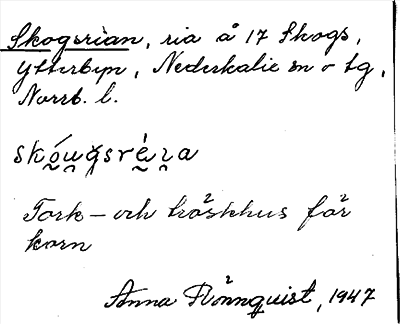 Skogsrian, ria å 17 Skogs,
Ytterbyn, Nederkalix sn o tg,
Norrb. l.
skóu̯gsrèɩa
Tork- och tröskhus för
korn
Anna Rönnquist, 1947